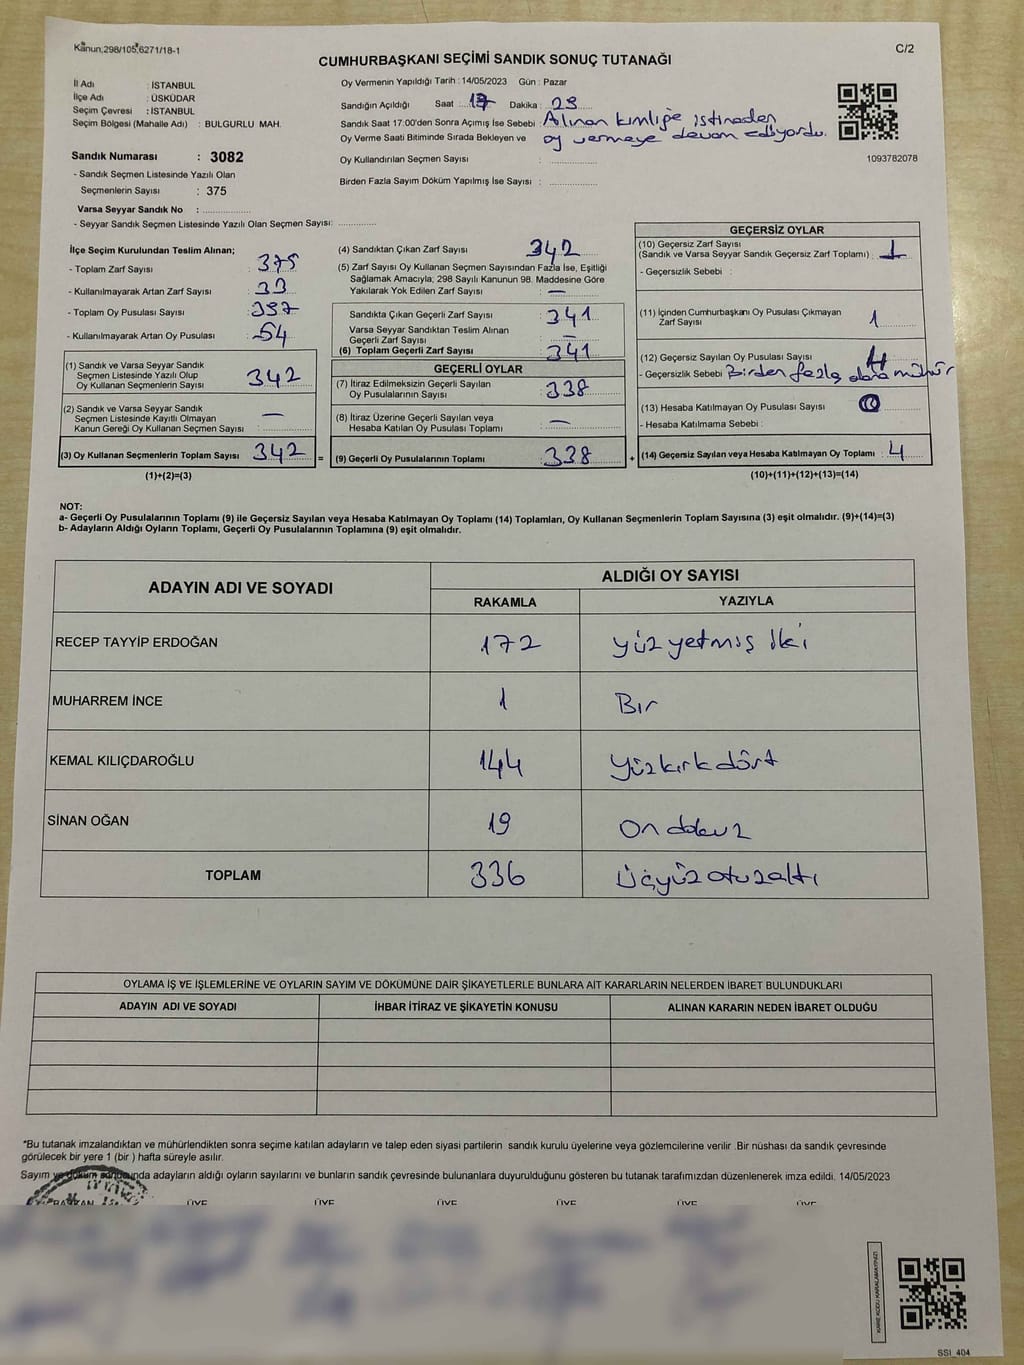 Kanun,298/105,6271/18-1
C/2
CUMHURBAŞKANI SEÇİMİ SANDIK SONUÇ TUTANAĞI
İl Adı : İSTANBUL
İlçe Adı : ÜSKÜDAR
Seçim Çevresi : İSTANBUL
Seçim Bölgesi (Mahalle Adı) : BULGURLU MAH.
Sandık Numarası : 3082
- Sandık Seçmen Listesinde Yazılı Olan
Seçmenlerin Sayısı : 375
Varsa Seyyar Sandık No :
- Seyyar Sandık Seçmen Listesinde Yazılı Olan Seçmen Sayısı:
Oy Vermenin Yapıldığı Tarih : 14/05/2023 Gün : Pazar
Sandığın Açıldığı Saat : 17 Dakika :
Sandık Saat 17:00'den Sonra Açımış İse Sebebi : Alınan kimliğe istinaden
Oy Verme Saati Bitiminde Sırada Bekleyen ve oy vermeye devam ediyordu.
Oy Kullandırılan Seçmen Sayısı :
Birden Fazla Sayım Döküm Yapılmış İse Sayısı :
1093782078
İlçe Seçim Kurulundan Teslim Alınan;
- Toplam Zarf Sayısı : 375
- Kullanılmayarak Artan Zarf Sayısı : 33
- Toplam Oy Pusulası Sayısı :
- Kullanılmayarak Artan Oy Pusulası : 54
(1) Sandık ve Varsa Seyyar Sandık
Seçmen Listesinde Yazılı Olup
Oy Kullanan Seçmenlerin Sayısı : 342
(2) Sandık ve Varsa Seyyar Sandık
Seçmen Listesinde Kayıtlı Olmayan
Kanun Gereği Oy Kullanan Seçmen Sayısı : —
(3) Oy Kullanan Seçmenlerin Toplam Sayısı : 342 =
(1)+(2)=(3)
(4) Sandıktan Çıkan Zarf Sayısı : 342
(5) Zarf Sayısı Oy Kullanan Seçmen Sayısından Fazla İse, Eşitliği
Sağlamak Amacıyla; 298 Sayılı Kanunun 98. Maddesine Göre
Yakılarak Yok Edilen Zarf Sayısı : —
Sandıkta Çıkan Geçerli Zarf Sayısı : 341
Varsa Seyyar Sandıktan Teslim Alınan
Geçerli Zarf Sayısı : —
(6) Toplam Geçerli Zarf Sayısı : 341
GEÇERLİ OYLAR
(7) İtiraz Edilmeksizin Geçerli Sayılan
Oy Pusulalarının Sayısı : 338
(8) İtiraz Üzerine Geçerli Sayılan veya
Hesaba Katılan Oy Pusulası Toplamı : —
(9) Geçerli Oy Pusulalarının Toplamı : 338 +
GEÇERSİZ OYLAR
(10) Geçersiz Zarf Sayısı
(Sandık ve Varsa Seyyar Sandık Geçersiz Zarf Toplamı) : 1
- Geçersizlik Sebebi :
(11) İçinden Cumhurbaşkanı Oy Pusulası Çıkmayan
Zarf Sayısı : 1
(12) Geçersiz Sayılan Oy Pusulası Sayısı : 4
- Geçersizlik Sebebi : Birden fazla mühür
(13) Hesaba Katılmayan Oy Pusulası Sayısı :
- Hesaba Katılmama Sebebi :
(14) Geçersiz Sayılan veya Hesaba Katılmayan Oy Toplamı : 4
(10)+(11)+(12)+(13)=(14)
NOT:
a- Geçerli Oy Pusulalarının Toplamı (9) ile Geçersiz Sayılan veya Hesaba Katılmayan Oy Toplamı (14) Toplamları, Oy Kullanan Seçmenlerin Toplam Sayısına (3) eşit olmalıdır. (9)+(14)=(3)
b- Adayların Aldığı Oyların Toplamı, Geçerli Oy Pusulalarının Toplamına (9) eşit olmalıdır.
ADAYIN ADI VE SOYADI
ALDIĞI OY SAYISI
RAKAMLA YAZIYLA
RECEP TAYYİP ERDOĞAN 172 yüz yetmiş iki
MUHARREM İNCE 1 Bir
KEMAL KILIÇDAROĞLU 144 yüzkırkdört
SİNAN OĞAN 19 on dokuz
TOPLAM 336 üçyüzotuzaltı
OYLAMA İŞ VE İŞLEMLERİNE VE OYLARIN SAYIM VE DÖKÜMÜNE DAİR ŞİKAYETLERLE BUNLARA AİT KARARLARIN NELERDEN İBARET BULUNDUKLARI
ADAYIN ADI VE SOYADI İHBAR İTİRAZ VE ŞİKAYETİN KONUSU ALINAN KARARIN NEDEN İBARET OLDUĞU
*Bu tutanak imzalandıktan ve mühürlendikten sonra seçime katılan adayların ve talep eden siyasi partilerin sandık kurulu üyelerine veya gözlemcilerine verilir .Bir nüshası da sandık çevresinde
görülecek bir yere 1 (bir ) hafta süreyle asılır.
Sayım ve döküm sonucunda adayların aldığı oyların sayılarını ve bunların sandık çevresinde bulunanlara duyurulduğunu gösteren bu tutanak tarafımızdan düzenlenerek imza edildi. 14/05/2023
BAŞKAN ÜYE ÜYE ÜYE ÜYE ÜYE ÜYE
KARE KODU KARALAMAYINIZ!
SSI_404